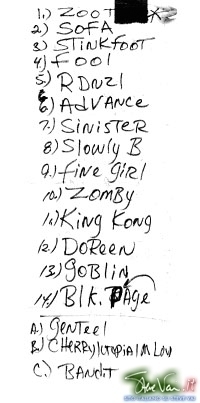 1.) ZOOT
2) SOFA
3.) STINKFOOT
4.) FOOL
5.) RDNZL
6) AdVANCE
7.) SiNiSTER
8.) Slowly B
9.) fiNE GiRl
10.) ZOMBY
11.) KiNG KONG
12.) DOREEN
13.) GOBLiN
14.) Blk. PAGE
A.) GENTEEl
B.) CHERRY/UTOPIA/M LOW
C.) BANdiT
SteveVai.it